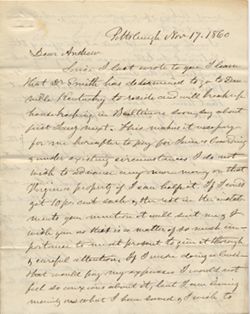 Pittsburgh Nov 17. 1860
Dear Andrew
Since I last wrote to you I learn
that Dr Smith has determined to go to Dan
ville Kentucky to reside and will break up
housekeeping in Baltimore some day about
first Jany next. This makes it necessary
for me hereafter to pay for Annie's boarding
under existing circumstances I do not
wish to advance any more money on that
Virginia property if I can help it. If I could
get 10 per cent cash & the rest in the instal
ments you mention it will suit me, & I
wish you as this is a matter of so much im
portance to me at present to give it thorough
& careful attention. If I were doing a busi
that would pay my expenses I would not
feel so anxious about it, but I am living
on what I have saved & I wish to